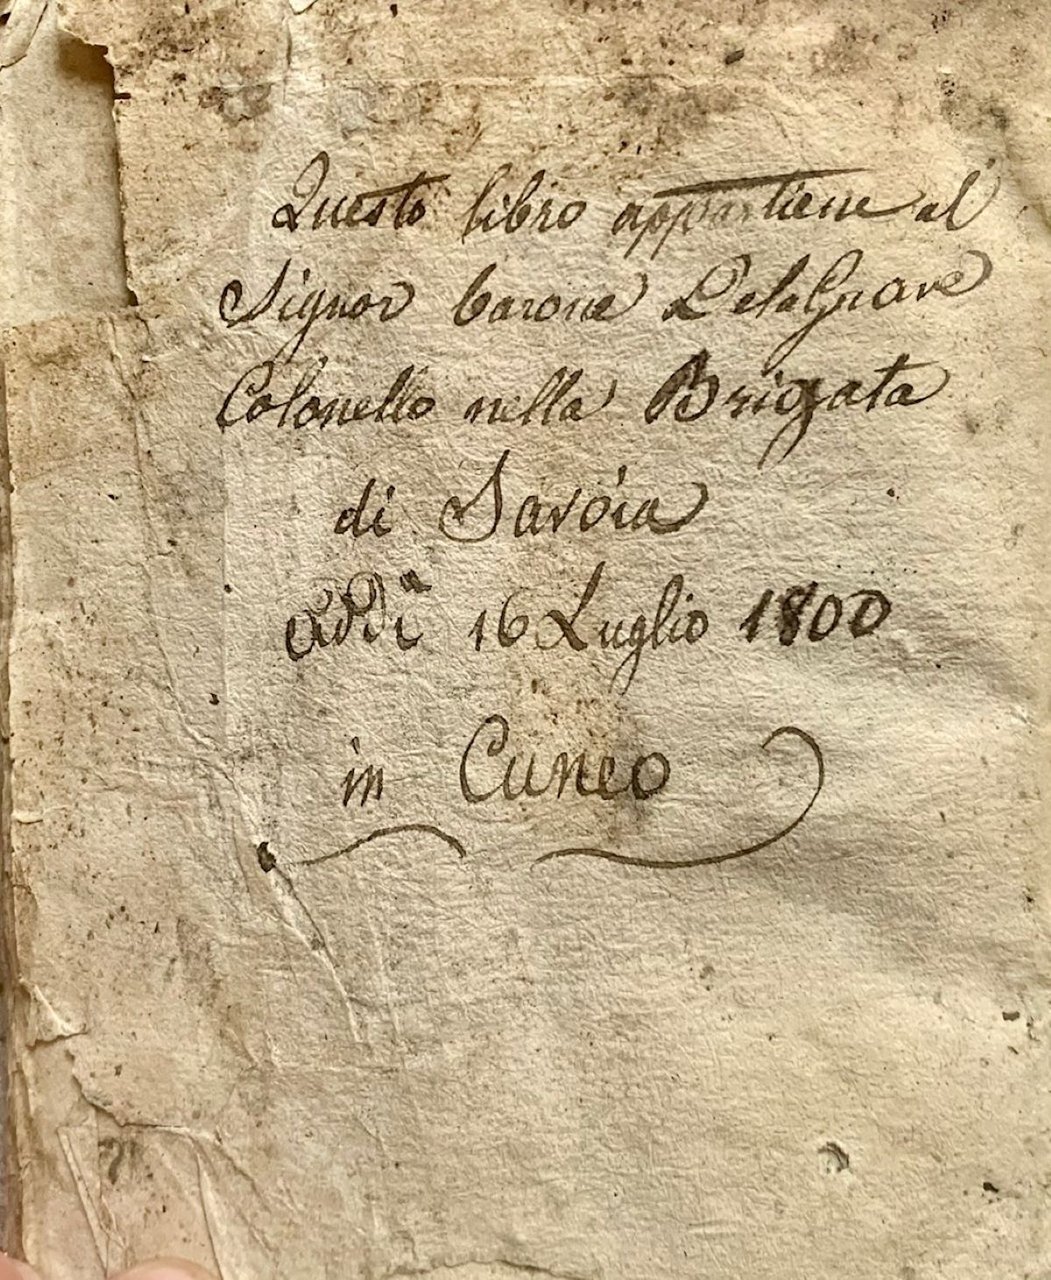 Questo libro appartiene al
Signor barone DelaGrave
Colonello nella Brigata
di Savoia
Addi 16 Luglio 1800
in Cuneo